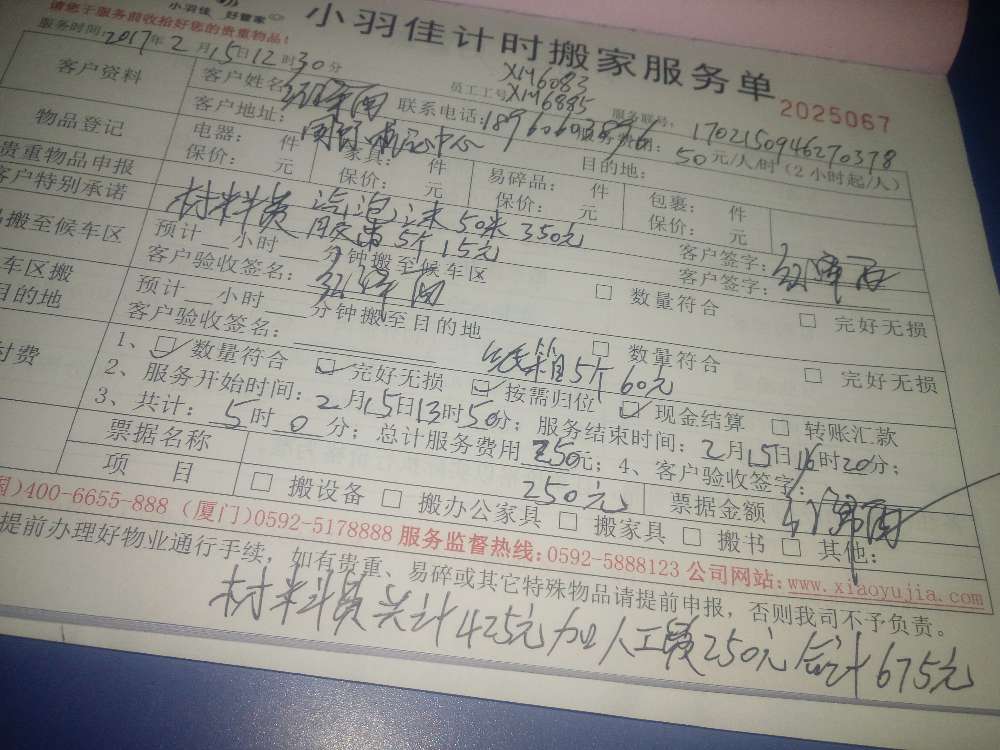 小羽佳 好管家
请您于服务前收拾好您的贵重物品!
小羽佳计时搬家服务单
2025067
服务时间:2017年2月15日12时30分
员工工号: XM6083 XM6885
服务联号: 1702150946270378
客户资料
客户姓名:
联系电话:
服务费用: 50元/人/时(2小时起/人)
客户地址: 中心
目的地:
物品登记
电器: 件
家具: 件
易碎品: 件
包裹: 件
保价: 元
保价: 元
保价: 元
保价: 元
贵重物品申报
材料费 气泡 50米 350元
客户签字:
客户特别承诺
胶带5个 15元
客户签字:
搬至候车区
预计 小时 分钟搬至候车区
客户验收签名:
数量符合
完好无损
车区搬
目的地
预计 小时 分钟搬至目的地
客户验收签名:
数量符合
完好无损
纸箱5个 60元
付费
1、 数量符合 完好无损 按需归位 现金结算 转账汇款
2、服务开始时间: 2月15日13时50分; 服务结束时间: 2月15日16时20分;
3、共计: 5时0分; 总计服务费用 250元; 4、客户验收签字:
票据名称
250元
票据金额
项 目
搬设备 搬办公家具 搬家具 搬书 其他:
400-6655-888 (厦门)0592-5178888 服务监督热线:0592-5888123 公司网站:www.xiaoyujia.com
提前办理好物业通行手续, 如有贵重、易碎或其它特殊物品请提前申报, 否则我司不予负责。
材料费共计425元加人工费250元合计675元